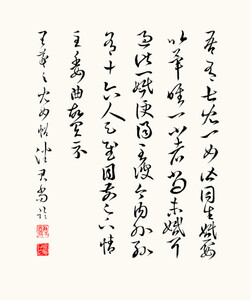 吾有七兒一女皆同生婚娶
以畢唯一小者尚未婚耳
過此一婚便得至彼今内外孫
有十六人足慰目前足下情
至委曲故具示
王羲之兒女帖